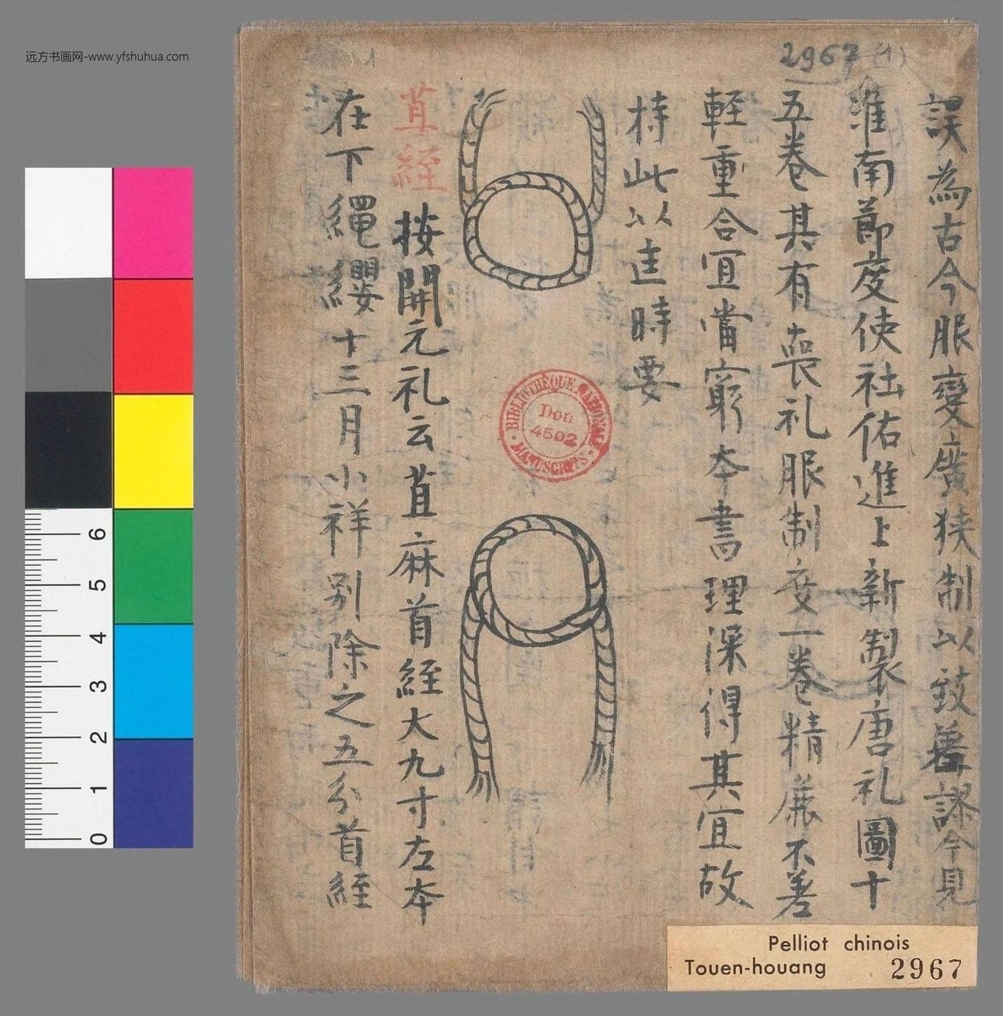 远方书画网-www.yfshuhua.com
2967 (1)
誤為古今服變廣狹制以致舊謬今見
淮南節度使社佑進上新製唐礼圖十
五卷其有喪礼服制度一卷精麁不差
輕重合宜當窮本書理深得其宜故
持此以 時要
苴絰
按開元礼云苴麻首絰大九寸左本
在下繩纓十三月小祥別除之五分首絰
BIBLIOTHÈQUE NATIONALE
MANUSCRITS
Don
4502
6
5
4
3
2
1
0
Pelliot chinois
Touen-houang 2967